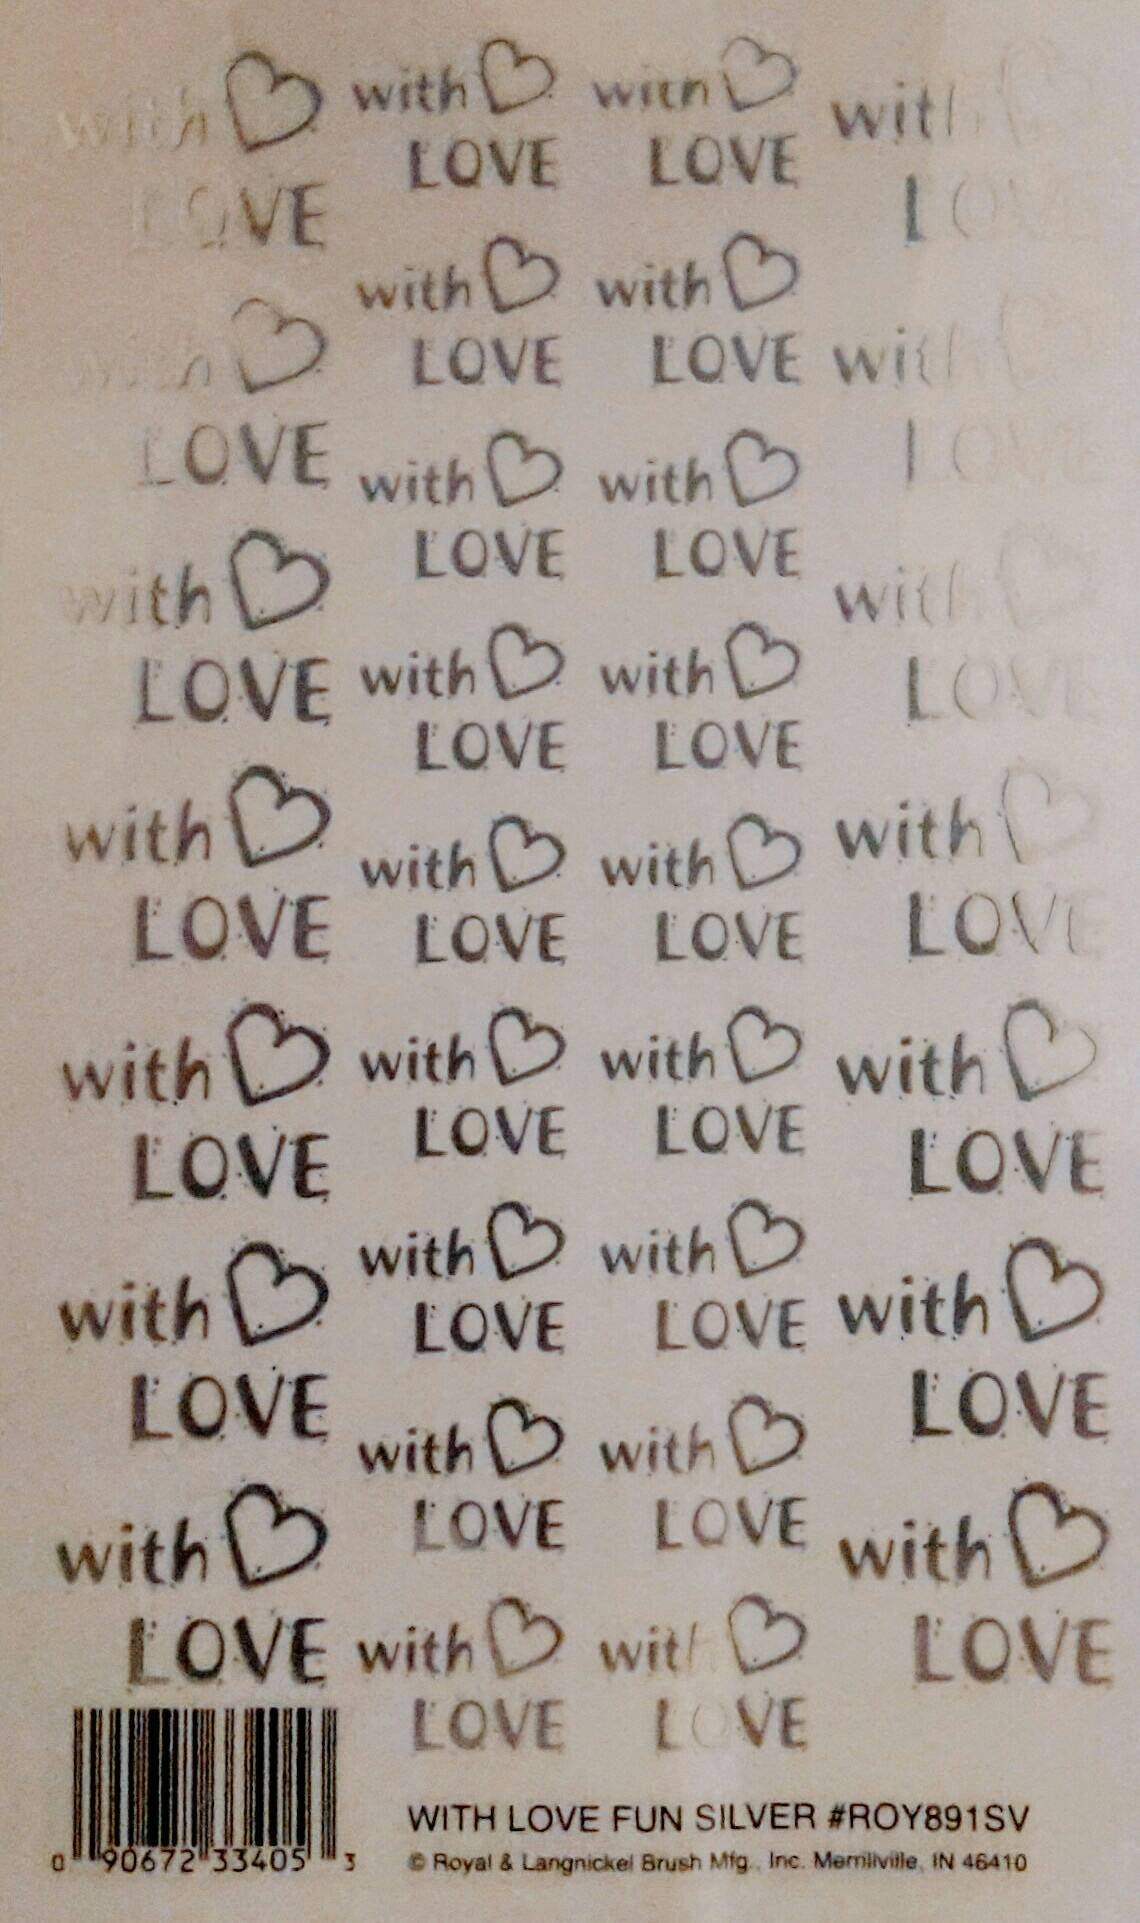 with
LOVE
with
LOVE
with
LOVE
with
LOVE
with
LOVE
with
LOVE
with
LOVE
with
LOVE
with
LOVE
with
LOVE
with
LOVE
with
LOVE
with
LOVE
with
LOVE
with
LOVE
with
LOVE
with
LOVE
with
LOVE
with
LOVE
with
LOVE
with
LOVE
with
LOVE
with
LOVE
with
LOVE
with
LOVE
with
LOVE
with
LOVE
with
LOVE
with
LOVE
with
LOVE
with
LOVE
with
LOVE
0 90672 33405 3
WITH LOVE FUN SILVER #ROY891SV
© Royal & Langnickel Brush Mfg., Inc. Merrillville, IN 46410